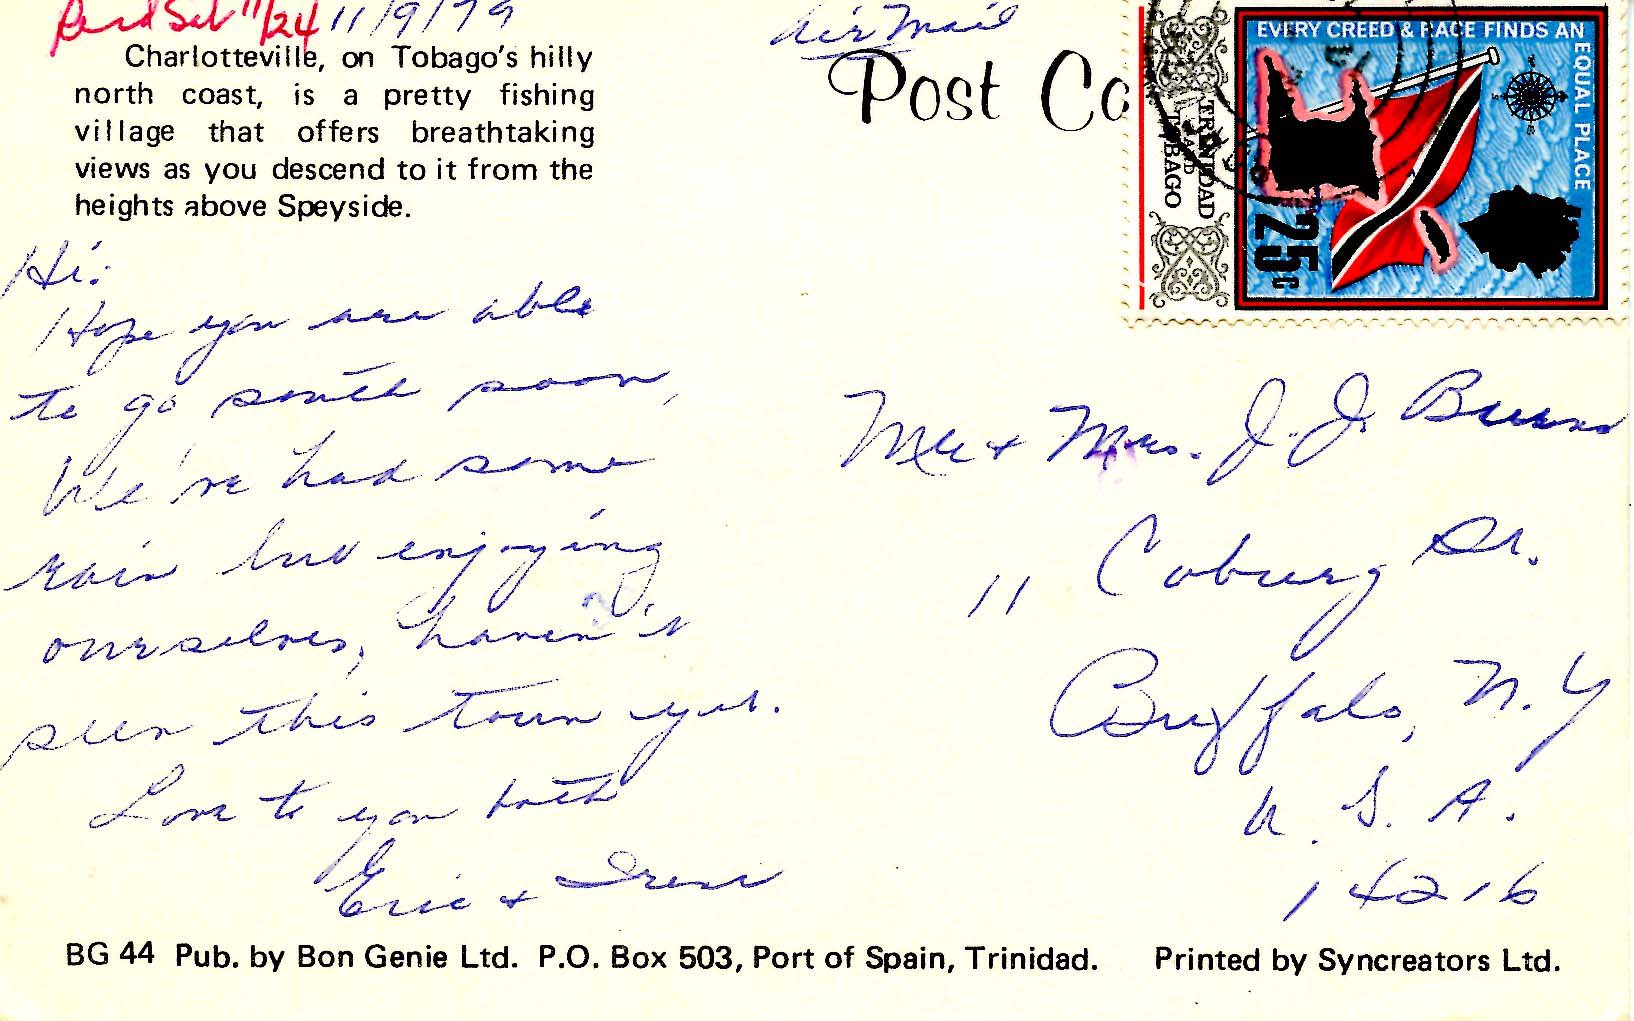 Rec'd Sat 11/24
11/9/79
Air Mail
Charlotteville, on Tobago's hilly
north coast, is a pretty fishing
village that offers breathtaking
views as you descend to it from the
heights above Speyside.
Post Ca
EVERY CREED & RACE FINDS AN
EQUAL PLACE
TRINIDAD
AND
TOBAGO
25c
Hi:
Hope you are able
to go south soon,
We've had some
rain but enjoying
ourselves, haven't
seen this town yet.
Love to you both
Eric + Irene
Mr + Mrs. J. J. Burns
11 Coburg St.
Buffalo, N.Y
U.S.A.
14216
BG 44 Pub. by Bon Genie Ltd. P.O. Box 503, Port of Spain, Trinidad. Printed by Syncreators Ltd.